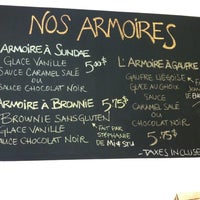 NOS ARMOIRES
ARMOIRE À SUNDAE
GLACE VANILLE 5,00$
SAUCE CARAMEL SALÉ
OU SAUCE CHOCOLAT NOIR
ARMOIRE À BROWNIE 5,75$
BROWNIE SANS GLUTEN
GLACE VANILLE
SAUCE CHOCOLAT NOIR
FAIT PAR
STÉPHANIE
DE
L'ARMOIRE À GAUFRE
GAUFRE LIÉGOISE
GLACE AU CHOIX
SAUCE
CARAMEL SALÉ
OU
CHOCOLAT NOIR
5,75$
-TAXES INCLUSES